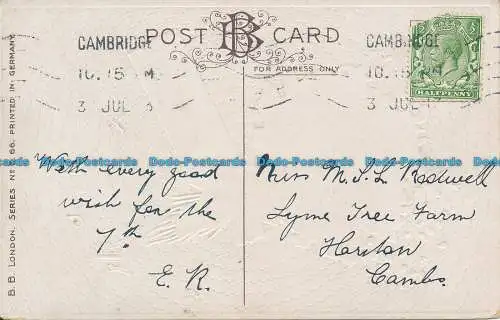 POST CARD
BB
FOR ADDRESS ONLY
CAMBRIDGE
10.15 M
3 JUL
CAMBRIDGE
10.15
3 JUL
HALFPENNY
B. B. LONDON. SERIES No 66. PRINTED IN GERMANY.
With every good
wish for the
7th
E. R.
Miss M. I. L Rodwell
Lyme Tree Farm
Harston
Cambs.
Dodo-Postcards Dodo-Postcards Dodo-Postcards